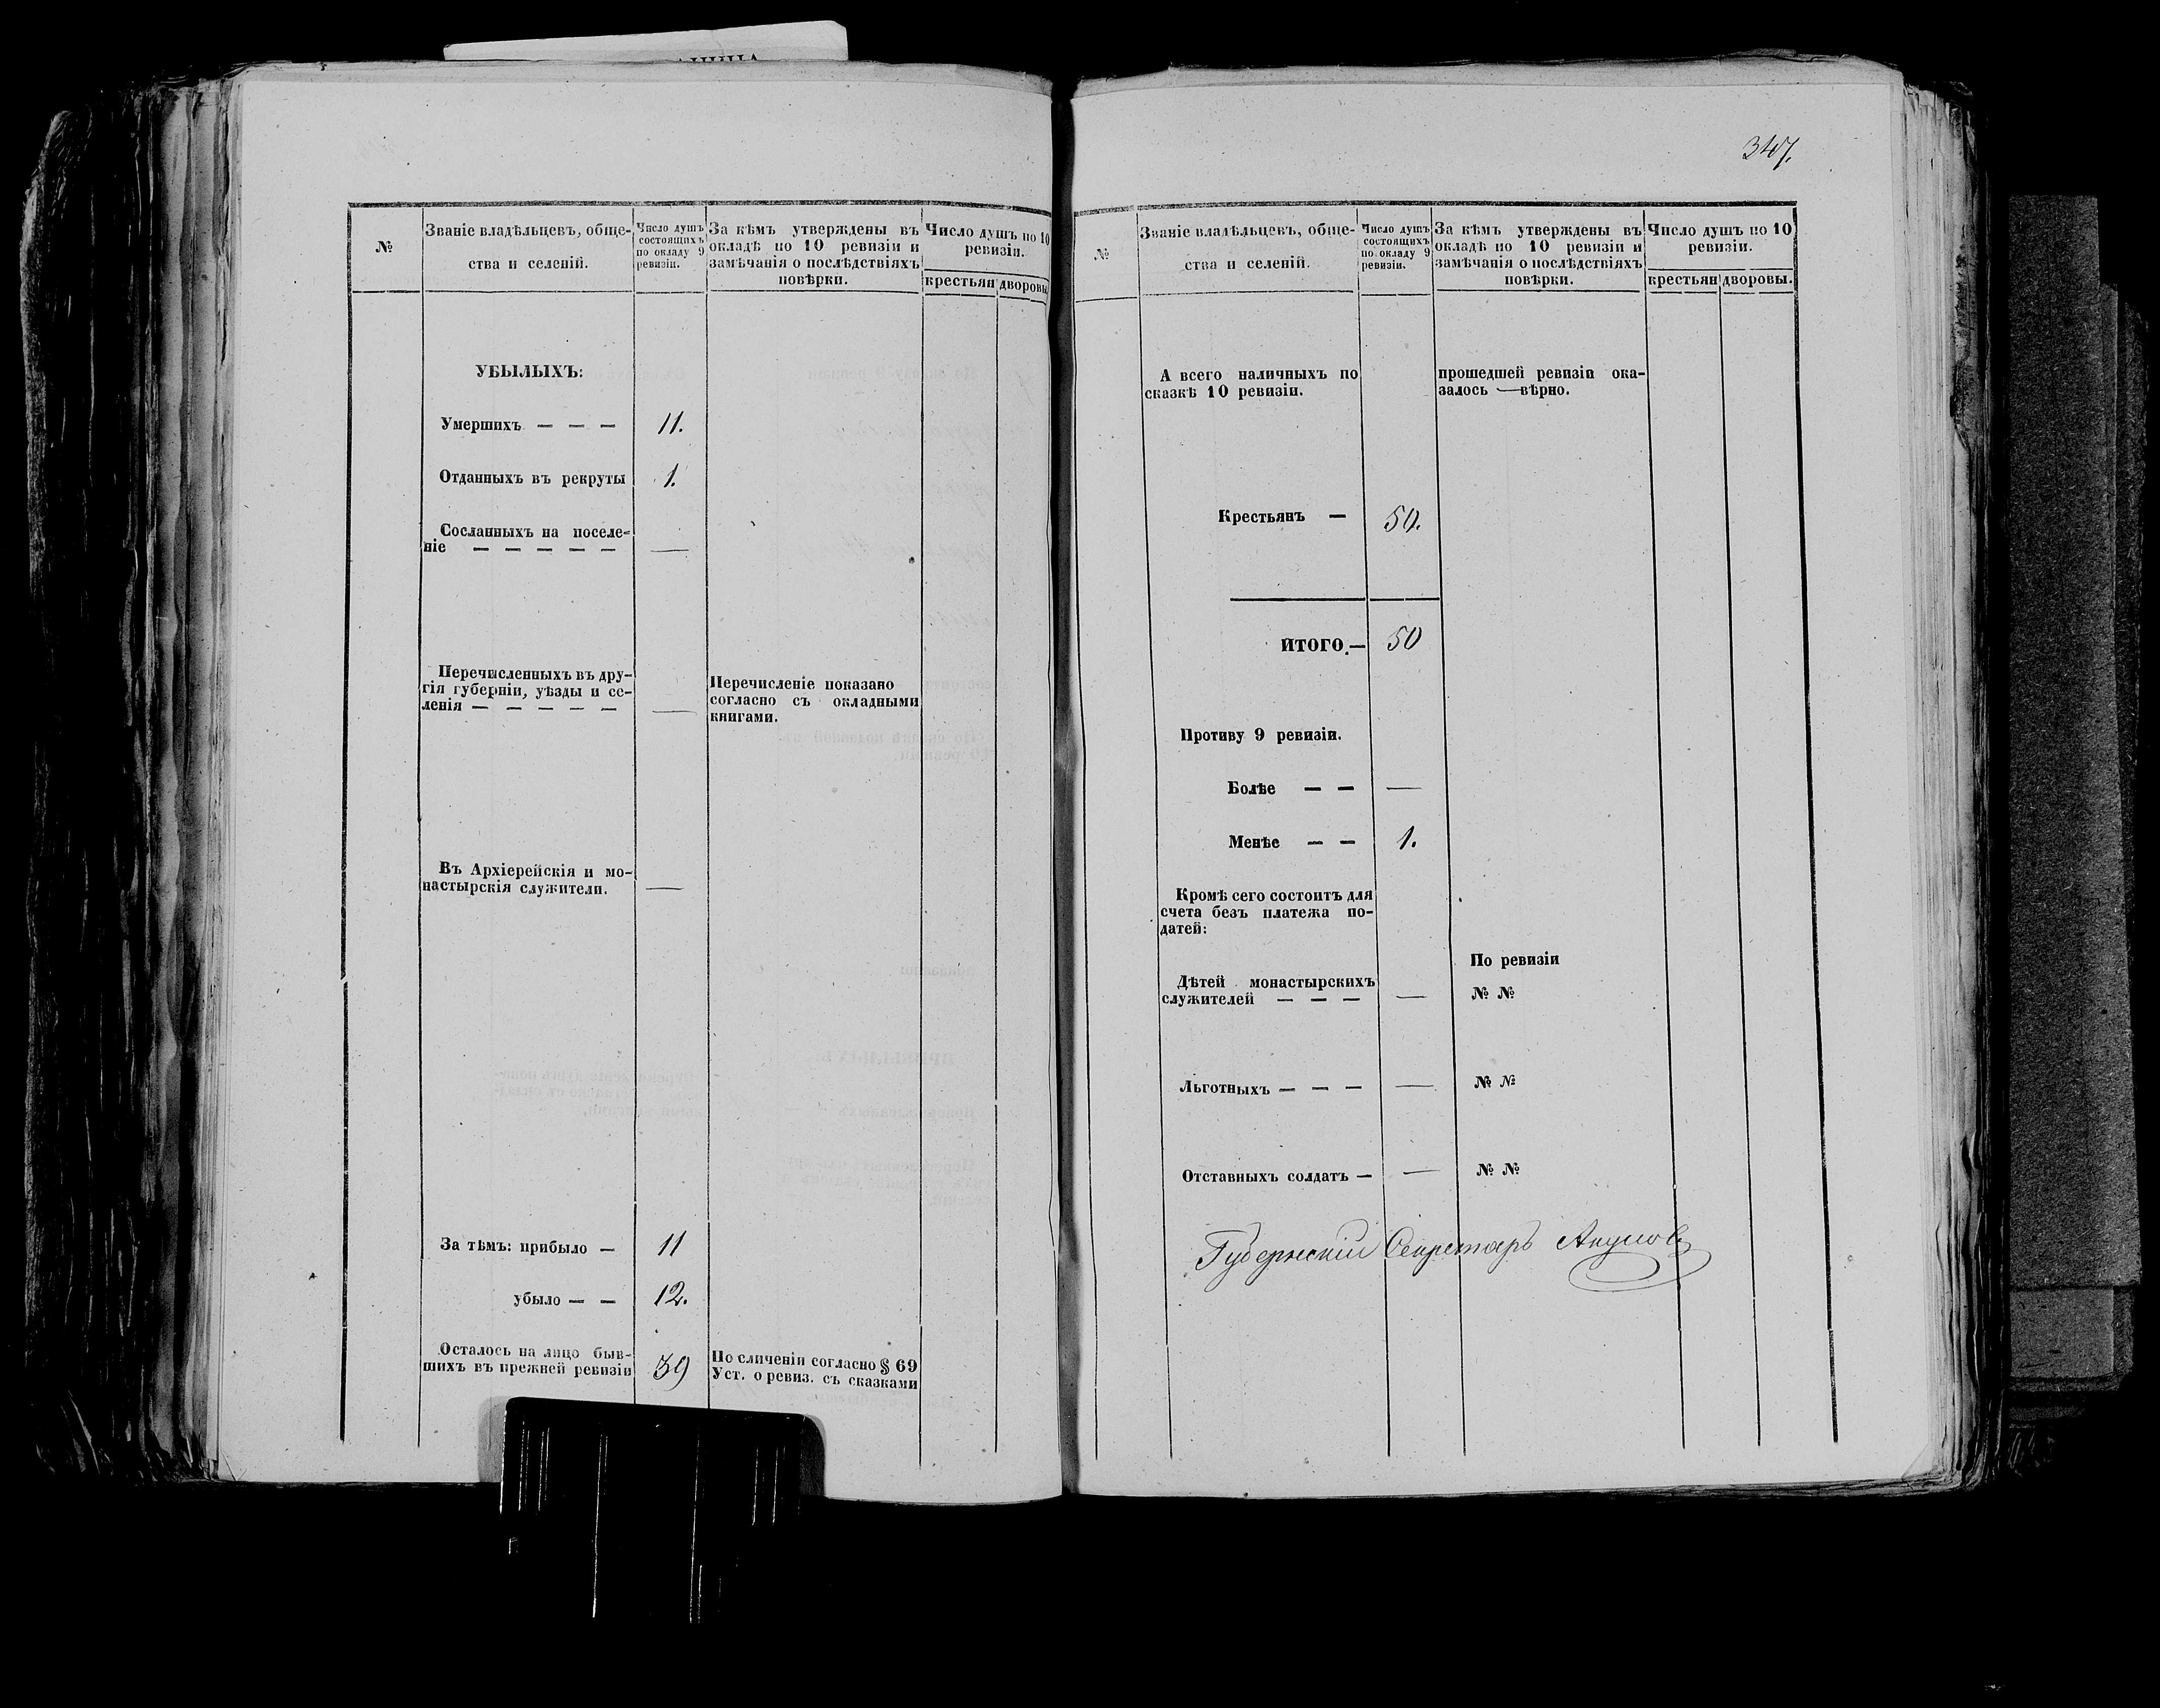 347.
№
Званіе владѣльцевъ, обще-
ства и селеній.
Число душъ
состоящихъ
по окладу 9
ревизіи.
За кѣмъ утверждены въ
окладѣ по 10 ревизіи и
замѣчанія о послѣдствіяхъ
повѣрки.
Число душъ по 10
ревизіи.
крестьян
дворовы
УБЫЛЫХЪ:
Умершихъ — — — 11.
Отданныхъ въ рекруты 1.
Сосланныхъ на поселе-
ніе — — — — — —
Перечисленныхъ въ дру-
гія губерніи, уѣзды и се-
ленія — — — — — —
Перечисленіе показано
согласно съ окладными
книгами.
Въ Архіерейскія и мо-
настырскія служители. —
За тѣмъ: прибыло — 11
убыло — — 12.
Осталось на лицо быв-
шихъ въ прежней ревизіи 39
По сличеніи согласно § 69
Уст. о ревиз. съ сказками
№
Званіе владѣльцевъ, обще-
ства и селеній.
Число душъ
состоящихъ
по окладу 9
ревизіи.
За кѣмъ утверждены въ
окладѣ по 10 ревизіи и
замѣчанія о послѣдствіяхъ
повѣрки.
Число душъ по 10
ревизіи.
крестьян
дворовы.
А всего наличныхъ по
сказкѣ 10 ревизіи.
прошедшей ревизіи ока-
залось — вѣрно.
Крестьянъ — 50.
ИТОГО.— 50
Противу 9 ревизіи.
Болѣе — — —
Менѣе — — 1.
Кромѣ сего состоитъ для
счета безъ платежа по-
датей:
По ревизіи
Дѣтей монастырскихъ
служителей — — — — № №
Льготныхъ — — — — № №
Отставныхъ солдатъ — — № №
Губернскій Секретарь